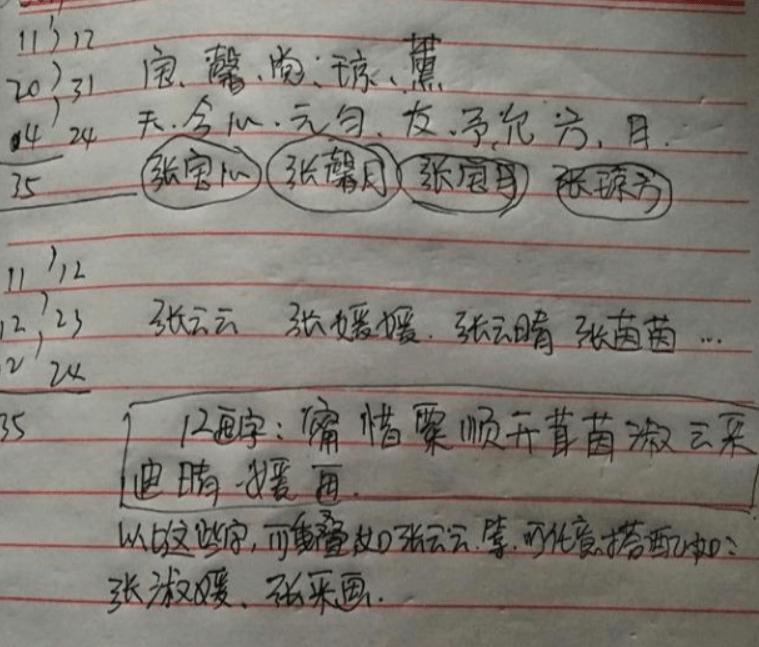 11 12
20 31 宝、馨、尚、琼、薰
04 24 天、今、心、元、匀、友、予、允、方、月.
35 张宝心 张馨月 张宝月 张琼方
11 12
12 23 张云云 张媛媛. 张云晴 张茵茵 …
12 24
35 12画字: 惜粟顺开茸茵淑云采
迪晴媛画.
以上这些字,可重叠如张云云.等.可任意搭配如:
张淑媛、张采画.